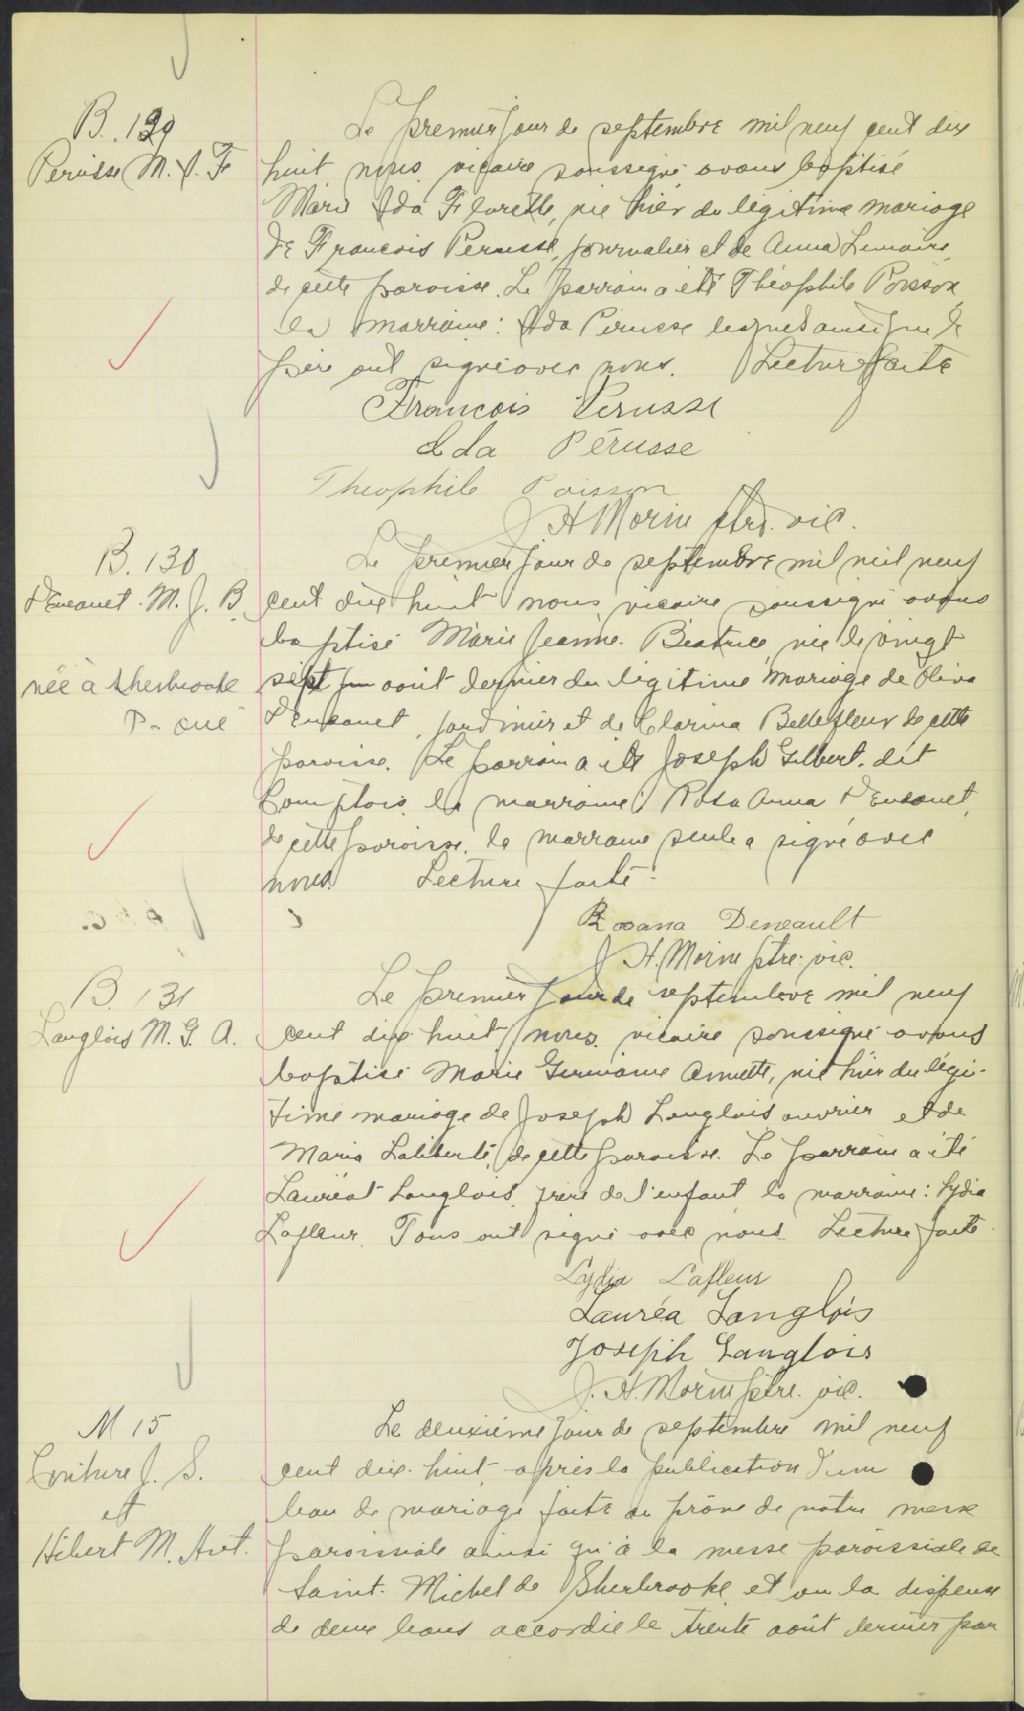 B. 129
Perusse M. I. F
Le premier jour de septembre mil neuf cent dix
huit nous vicaire soussigné avons baptisé
Marie Ida Florette, née hier du légitime mariage
de Francois Perusse, journalier et de Anna Lemaire
de cette paroisse. Le parrain a été Théophile Poisson
la marraine: Ida Perusse lesquels ainsi que le
père ont signé avec nous. Lecture faite
Francois Perusse
Ida Pérusse
Theophile Poisson
J H Morin ptre. vic.
B. 130
Deneault. M. J. B.
née à Sherbrooke
P. que
Le premier jour de septembre mil neuf
cent dix huit nous vicaire soussigné avons
baptisé Marie Jeanne Béatrice, née le vingt
sept août dernier du légitime mariage de Oliva
jardinier et de Clarina Bellefleur de cette
paroisse. Le parrain a été Joseph Gilbert. dit
Comptois la marraine Rosa Anna
de cette paroisse. la marraine seule a signé avec
nous. Lecture faite.
Roxana Deneault
J. H. Morin ptre. vic.
B. 131
Langlois M. G. A.
Le premier jour de septembre mil neuf
cent dix huit nous vicaire soussigné avons
baptisé Marie Germaine Annette, née hier du légi-
time mariage de Joseph Langlois ouvrier et de
Maria Laliberté, de cette paroisse. Le parrain a été
Lauréat Langlois, frère de l'enfant la marraine: Lydia
Lafleur. Tous ont signé avec nous. Lecture faite.
Lydia Lafleur
Lauréa Langlois
Joseph Langlois
J. H. Morin ptre. vic.
M 15
Couture J. S.
et
Hébert M. Ant.
Le deuxième jour de septembre mil neuf
cent dix-huit après la publication d'un
ban de mariage faite au prône de notre messe
paroissiale ainsi qu'à la messe paroissiale de
Saint-Michel de Sherbrooke et vu la dispense
de deux bans accordée le trente août dernier par